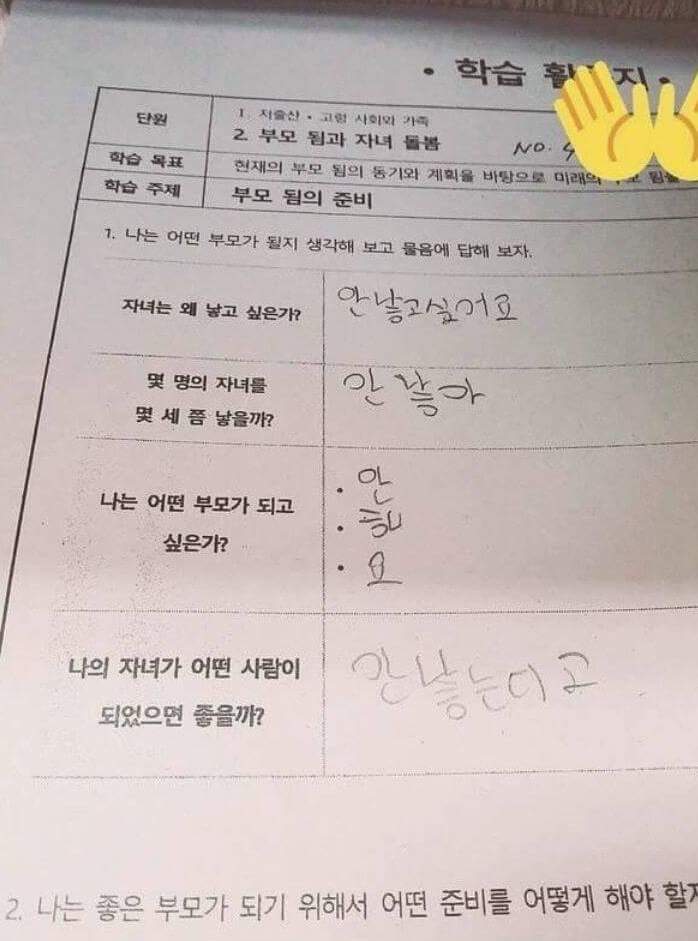 • 학습 활 지 •
단원
1. 저출산 • 고령 사회와 가족
2. 부모 됨과 자녀 돌봄
NO.
학습 목표
현재의 부모 됨의 동기와 계획을 바탕으로 미래의 부모 됨을
학습 주제
부모 됨의 준비
1. 나는 어떤 부모가 될지 생각해 보고 물음에 답해 보자.
자녀는 왜 낳고 싶은가?
안낳고싶어요
몇 명의 자녀를
몇 세 쯤 낳을까?
안 낳아
나는 어떤 부모가 되고
싶은가?
• 안
• 해
• 요
나의 자녀가 어떤 사람이
되었으면 좋을까?
안낳는다고
2. 나는 좋은 부모가 되기 위해서 어떤 준비를 어떻게 해야 할지